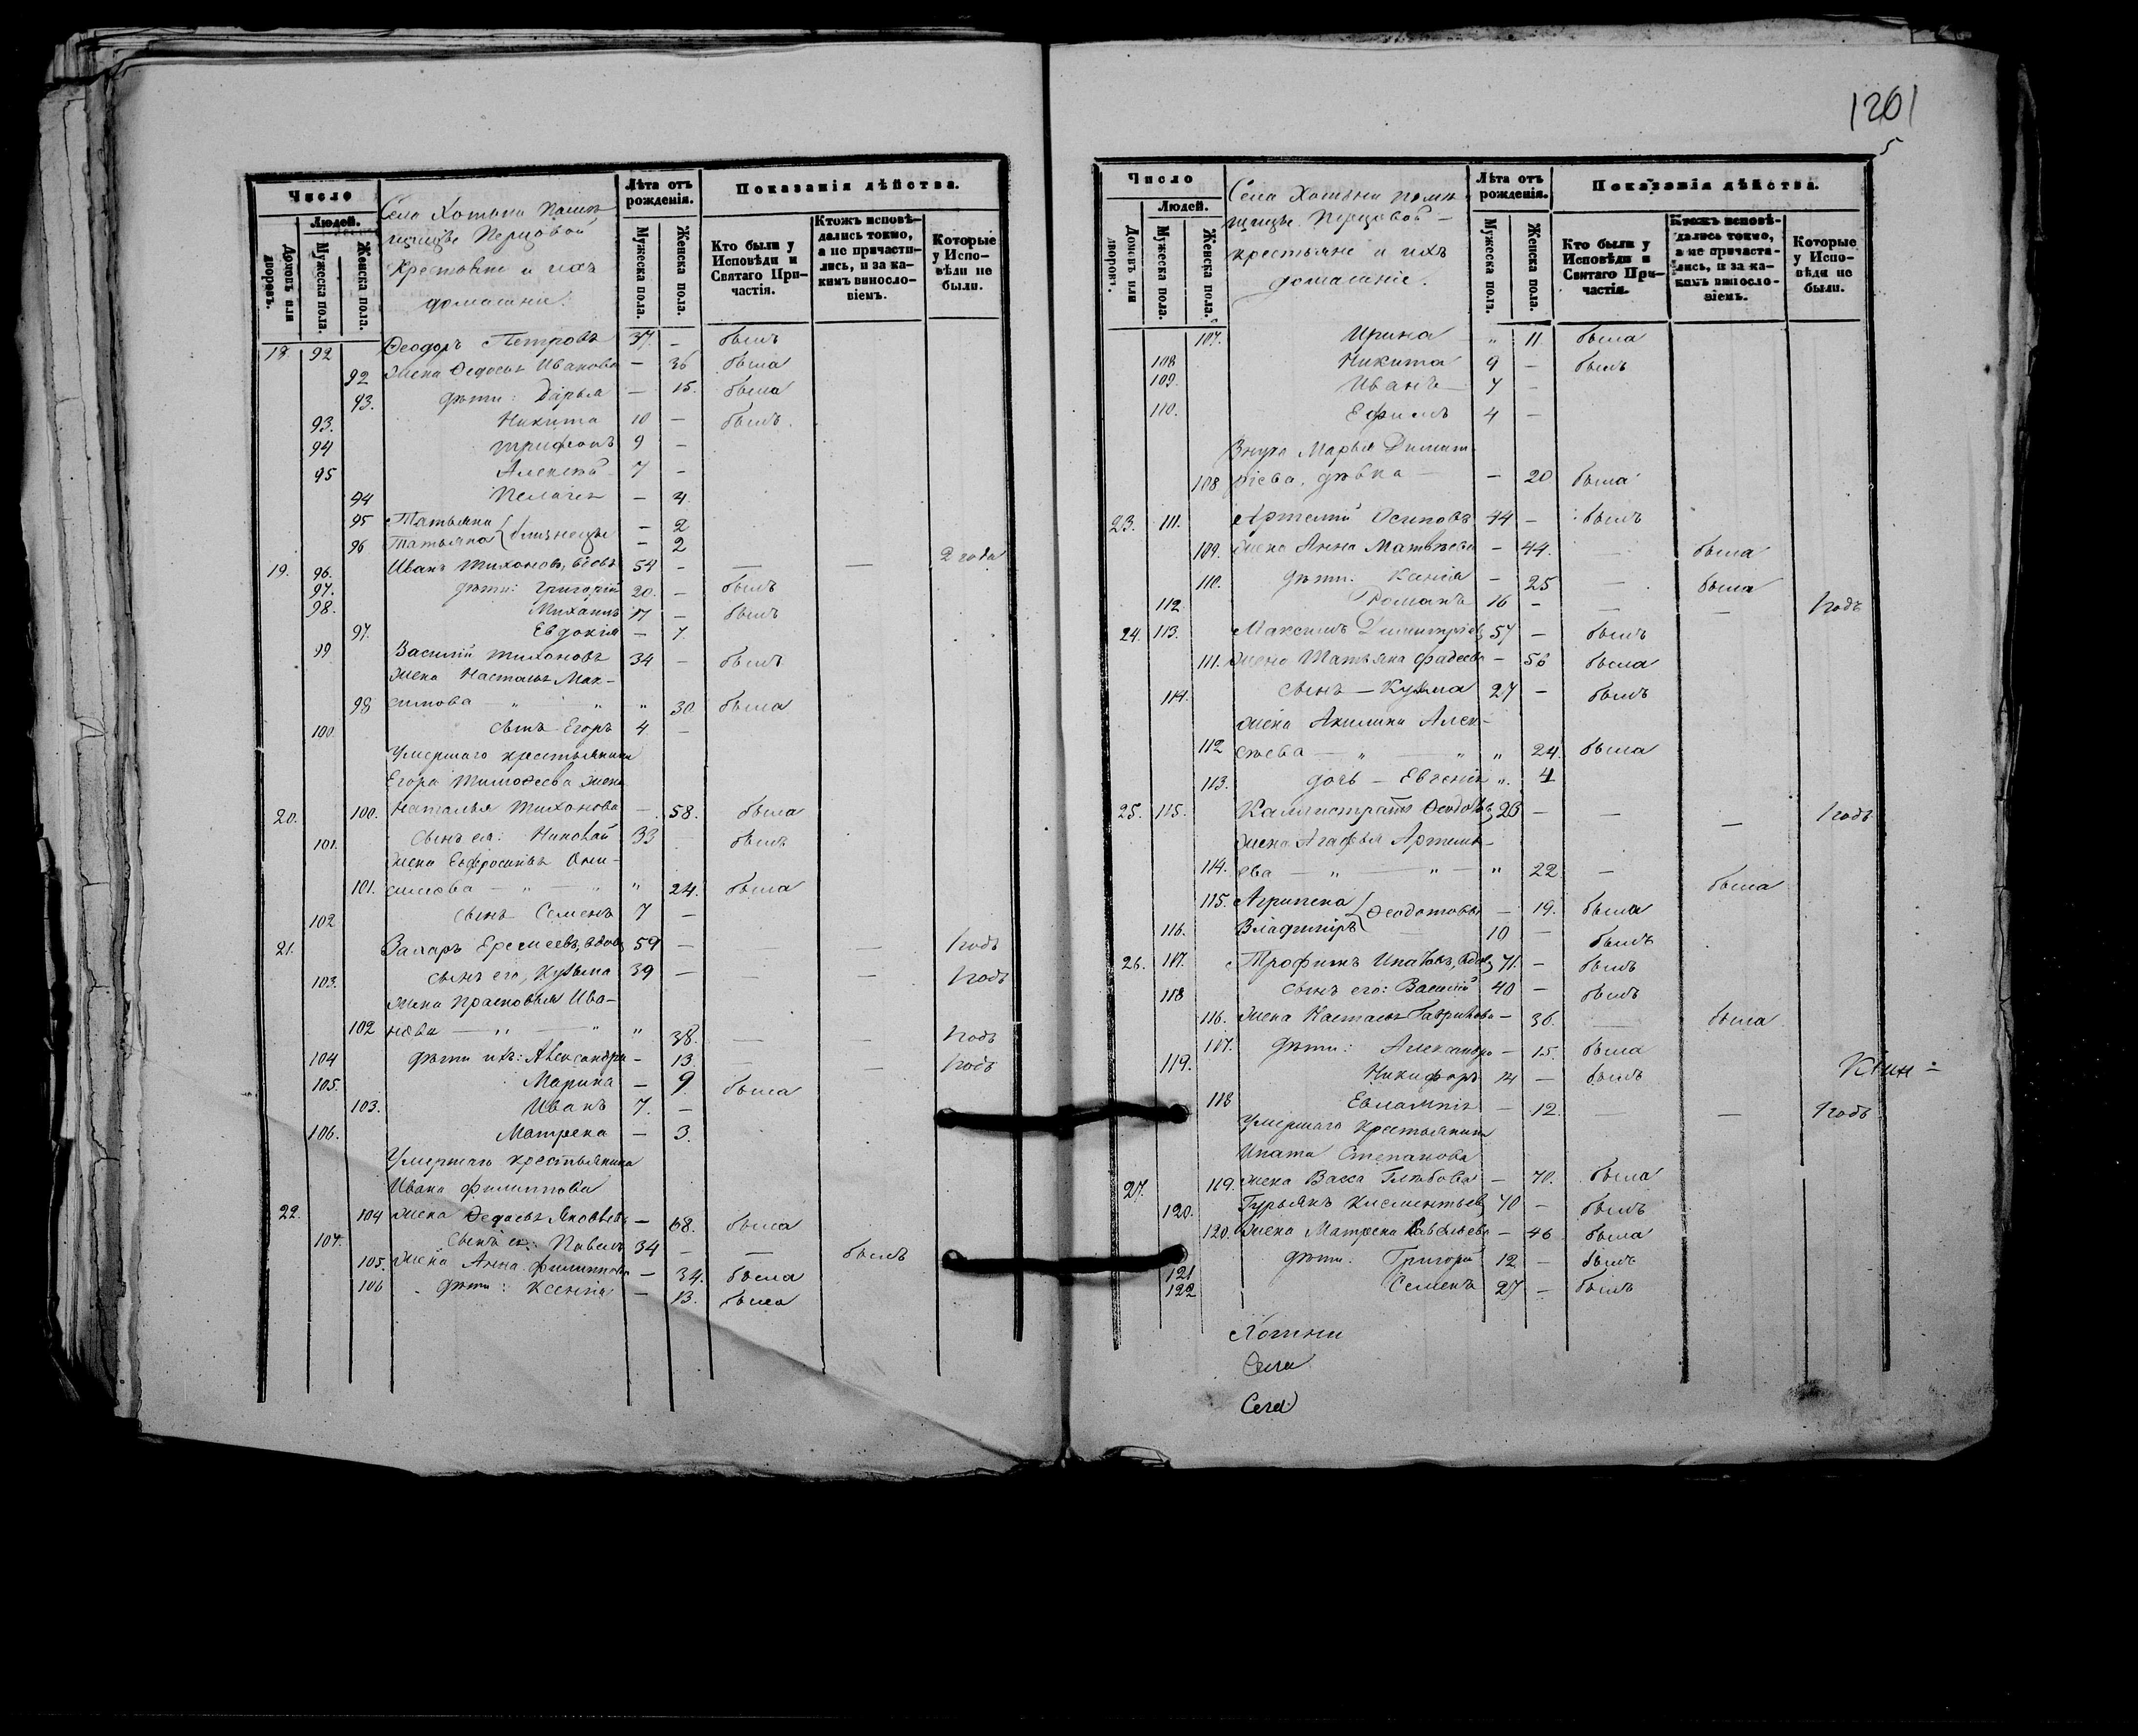 1261
5
Число
Людей.
Домовъ или дворовъ.
Мужеска пола.
Женска пола.
Села Хотьни помѣ-
щицы Перцовой
крестьяне и ихъ
домашніи:
Лѣта отъ рожденія.
Мужеска пола.
Женска пола.
Показанія дѣйства.
Кто были у Исповѣди и Святаго Причастія.
Ктожъ исповѣдались токмо, а не причастились, и за какимъ винословіемъ.
Которые у Исповѣди не были.
18. 92 Ѳеодоръ Петровъ 37. — былъ
92 жена Ѳедосья Иванова — 36 была
93. дѣти: Дарья — 15. была
93. Никита 10 — былъ.
94 Трифонъ 9 —
95 Алексѣй 7 —
94 Пелагея — 4.
95 Татьяна — 2
близнецы
96 Татьяна — 2
19. 96. Иванъ Тихоновъ, вдовъ 54 — — — 2 года
97. дѣти: Григорій 20. — былъ
98. Михаилъ 17 — былъ
97. Евдокія — 7.
99 Василій Тихоновъ 34 — былъ
жена Настасья Мак-
98 симова — " " " 30 была
100. сынъ Егоръ 4 —
Умершаго крестьянина
Егора Тимоѳеева жена
20. 100. Наталья Тихонова — 58. была
101. сынъ ея: Николай 33 былъ
жена Евфросинья Они-
101. симова — " — " " 24. была
102. сынъ Семенъ 7 —
21. Захаръ Еремеевъ, вдовъ 59 — — — 1 годъ
103. сынъ его, Кузьма 39 — — 1 годъ
жена Прасковья Ива-
102 нова — " — " " 38. — — 1 годъ
104 дѣти ихъ: Александра — 13. — — 1 годъ
105. Марина — 9. была
103. Иванъ 7. —
106. Матрена — 3.
Умершаго крестьянина
Ивана Филиппова
22. 104 жена Ѳедосья Яковлева — 68. была
107. сынъ ея: Павелъ 34 — — былъ
105. жена Анна Филиппова — 34. была
106 дѣти: Ксенія — 13. была
Число
Людей.
Домовъ или дворовъ.
Мужеска пола.
Женска пола.
Села Хотьни помѣ-
щицы Перцовой —
крестьяне и ихъ
домашніе.
Лѣта отъ рожденія.
Мужеска пола.
Женска пола.
Показанія дѣйства.
Кто были у Исповѣди и Святаго Причастія.
Ктожъ исповѣдались токмо, а не причастились, и за какимъ винословіемъ.
Которые у Исповѣди не были.
107. Ирина " 11 была
108 Никита 9 — былъ
109. Иванъ 7 —
110. Ефимъ 4 —
Внука Марья Димит-
108 ріева, дѣвка — — 20 была
23. 111. Артемій Осиповъ 44 — былъ
109. жена Анна Матвѣева — 44. — была
110. дѣти: Ксенія — 25 — была
112. Романъ 16 — — — 1 годъ
24. 113. Максимъ Димитріевъ 57 — былъ
111. жена Татьяна Фадеева — 56 была
114. сынъ — Кузьма 27 — былъ
жена Акилина Алек-
112 сѣева — " — " " 24. была
113. дочь — Евгенія " 4
25. 115. Каллистратъ Ѳеодотовъ 23 — — — 1 годъ
жена Агафья Артемь-
114. ева — " — " — " 22 — была
115. Агрипена — 19. была
Ѳеодотовы
116. Владиміръ 10 — былъ
26. 117. Трофимъ Ипатовъ, вдовъ 71. — былъ
118 сынъ его: Василій 40 — былъ
116. жена Настасья Гаврилова — 36. — была
117. дѣти: Александра — 15. была
119. Никифоръ 14 — былъ
118 Евлампія — 12. — — 1 годъ
Умершаго крестьянина
Ипата Степанова
27. 119. жена Васса Глѣбова — 70. была
120. Гурьянъ Клементьевъ 40 — былъ
120. жена Матрена Савельева — 46 была
121 дѣти: Григорій 12 — былъ
122 Семенъ 27 — былъ
Хотьни
Села
Села